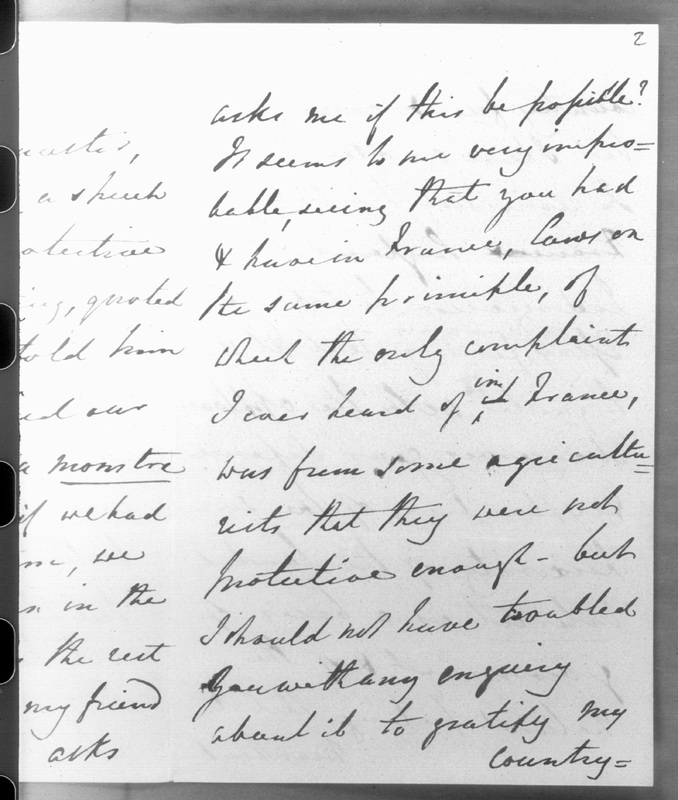 2
a speech
quoted
told him
our
a monstre
if we had
we
in the
the rest
my friend
asks
asks me if this be possible?
It seems to me very impro=
bable, seeing that you had
& have in France, Laws on
the same principle, of
which the only complaints
I ever heard of in France,
was from some agricultu=
rists that they were not
protective enough - but
I should not have troubled
you with any enquiry
about it to gratify my
country=